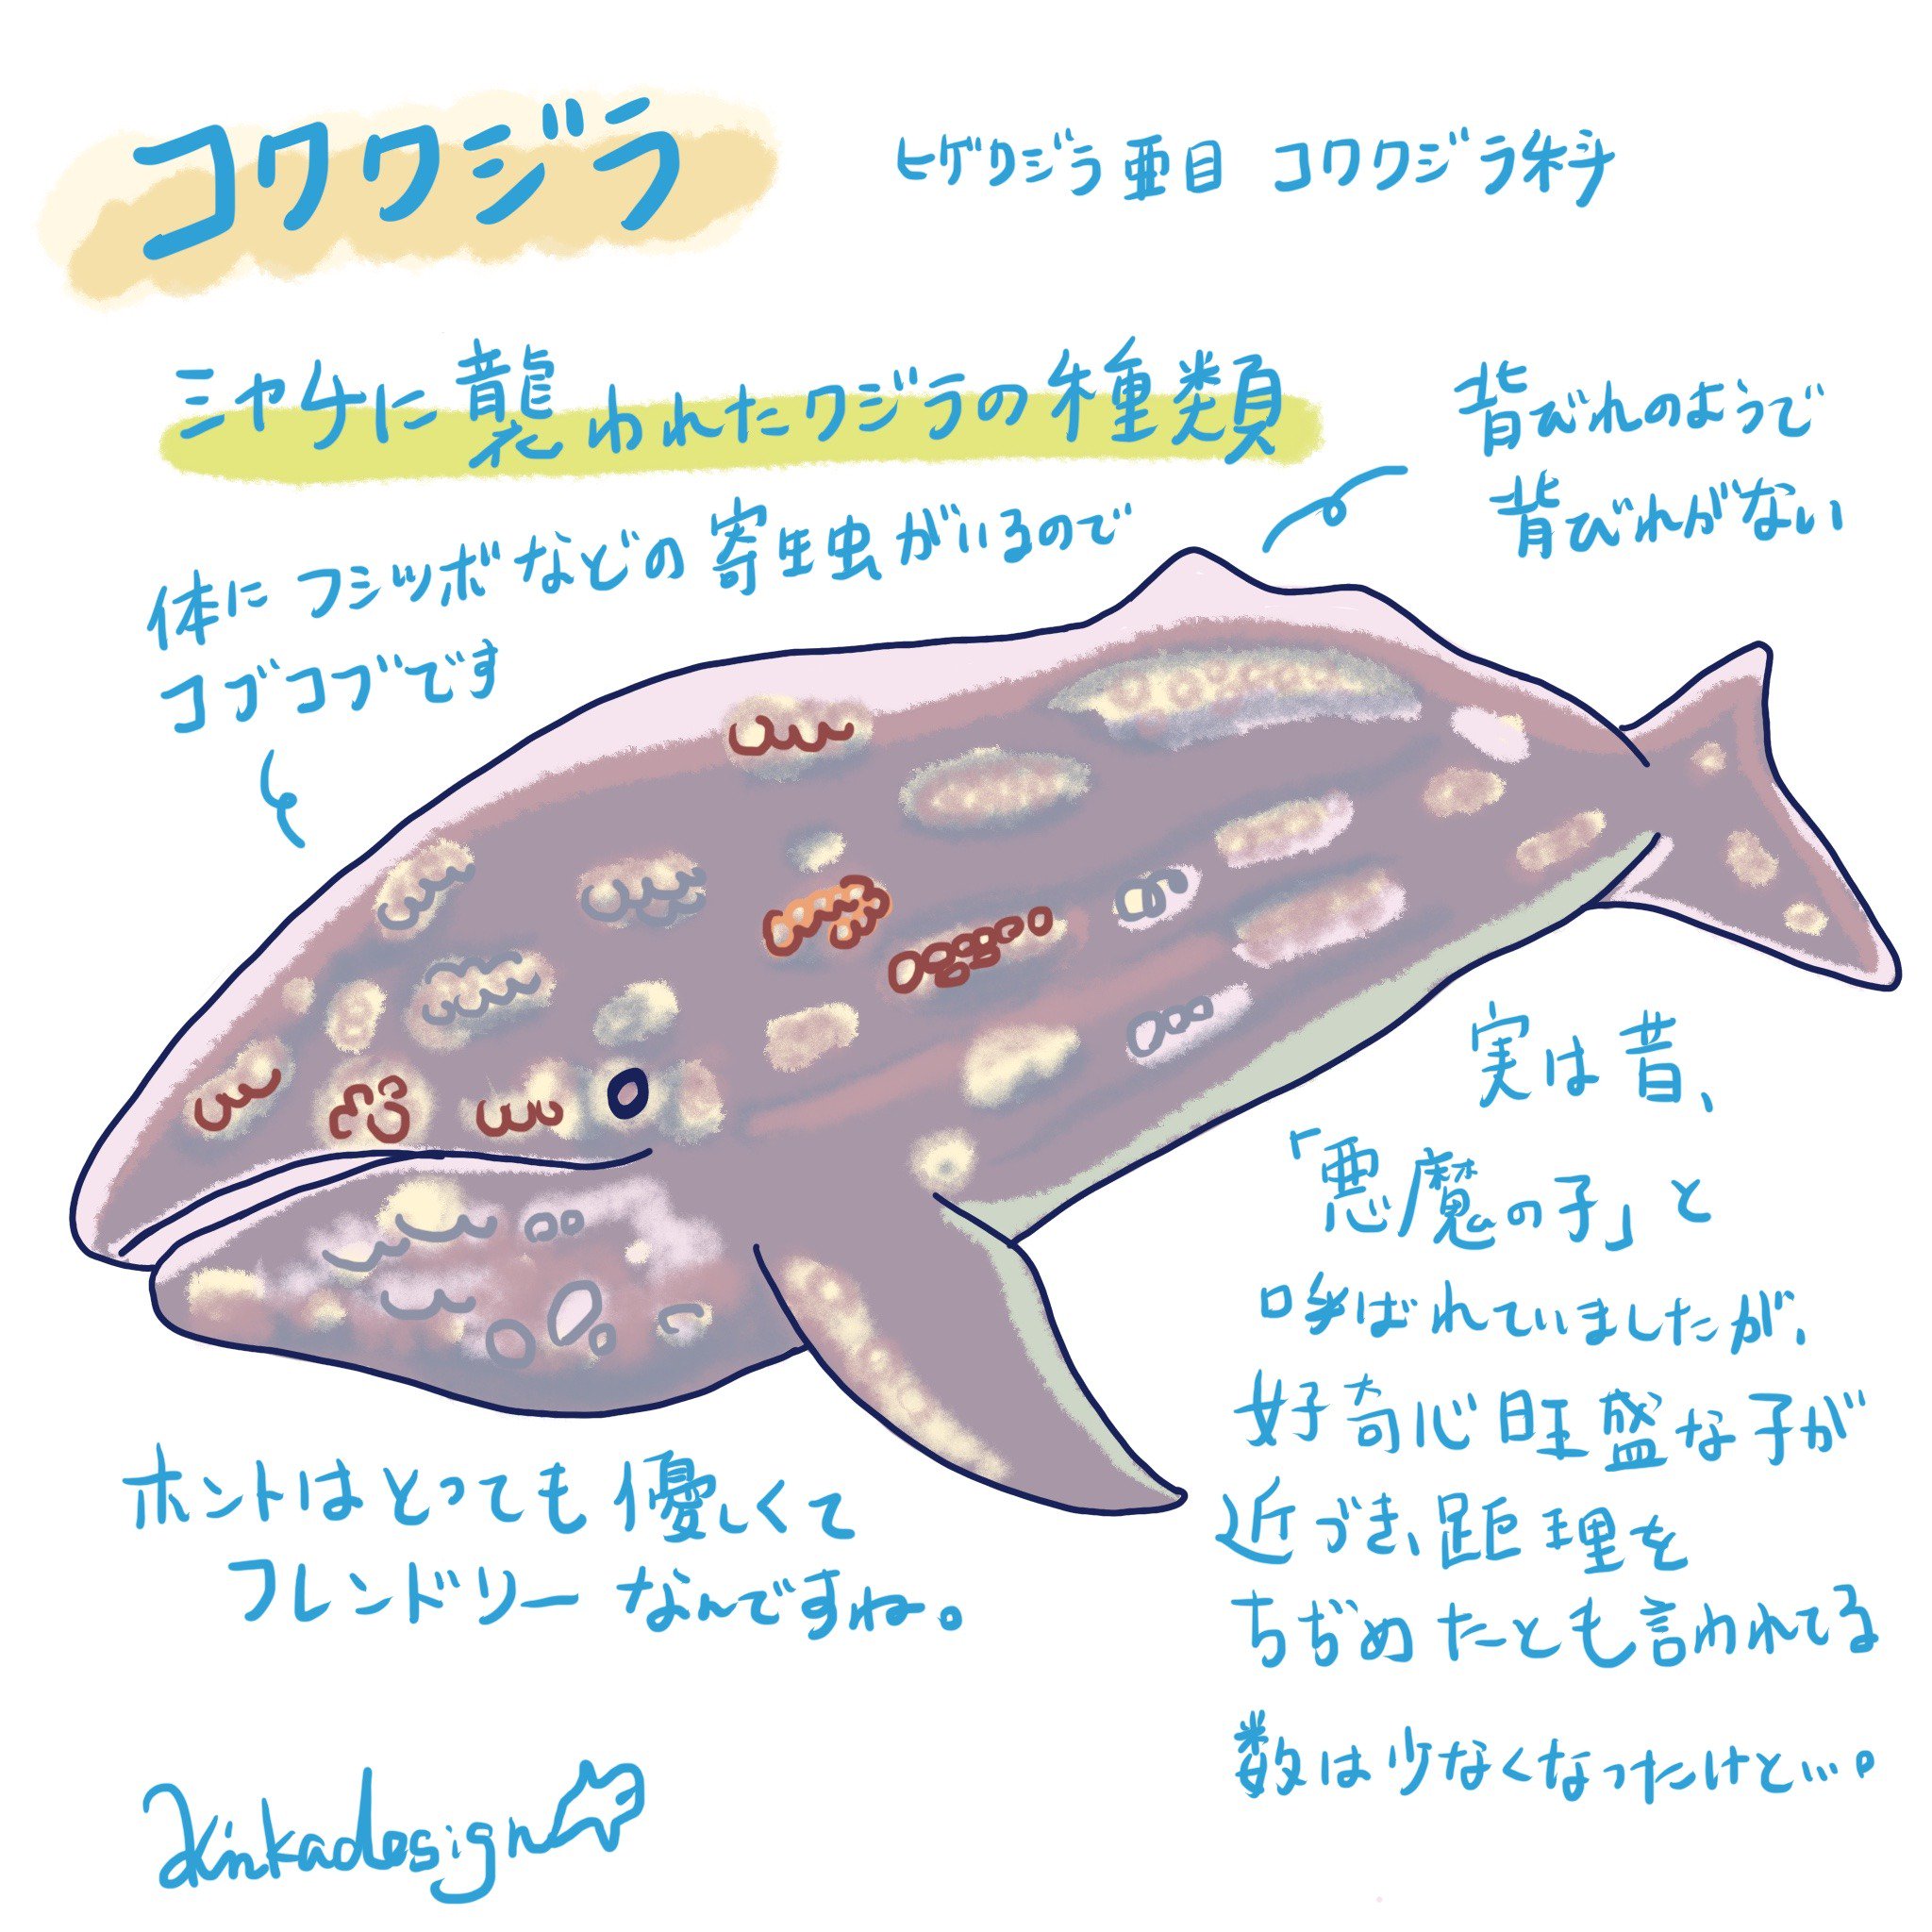 コククジラ
ヒゲクジラ亜目 コククジラ科
シャチに襲われたクジラの種類
背びれのようで
背びれがない
体にフジツボなどの寄生虫がいるので
コブコブです
実は昔、
「悪魔の子」と
呼ばれていましたが、
好奇心旺盛な子が
近づき、距理を
ちぢめたとも言われてる
数は少なくなったけと…。
ホントはとっても優しくて
フレンドリーなんですね。
Kinkadesign